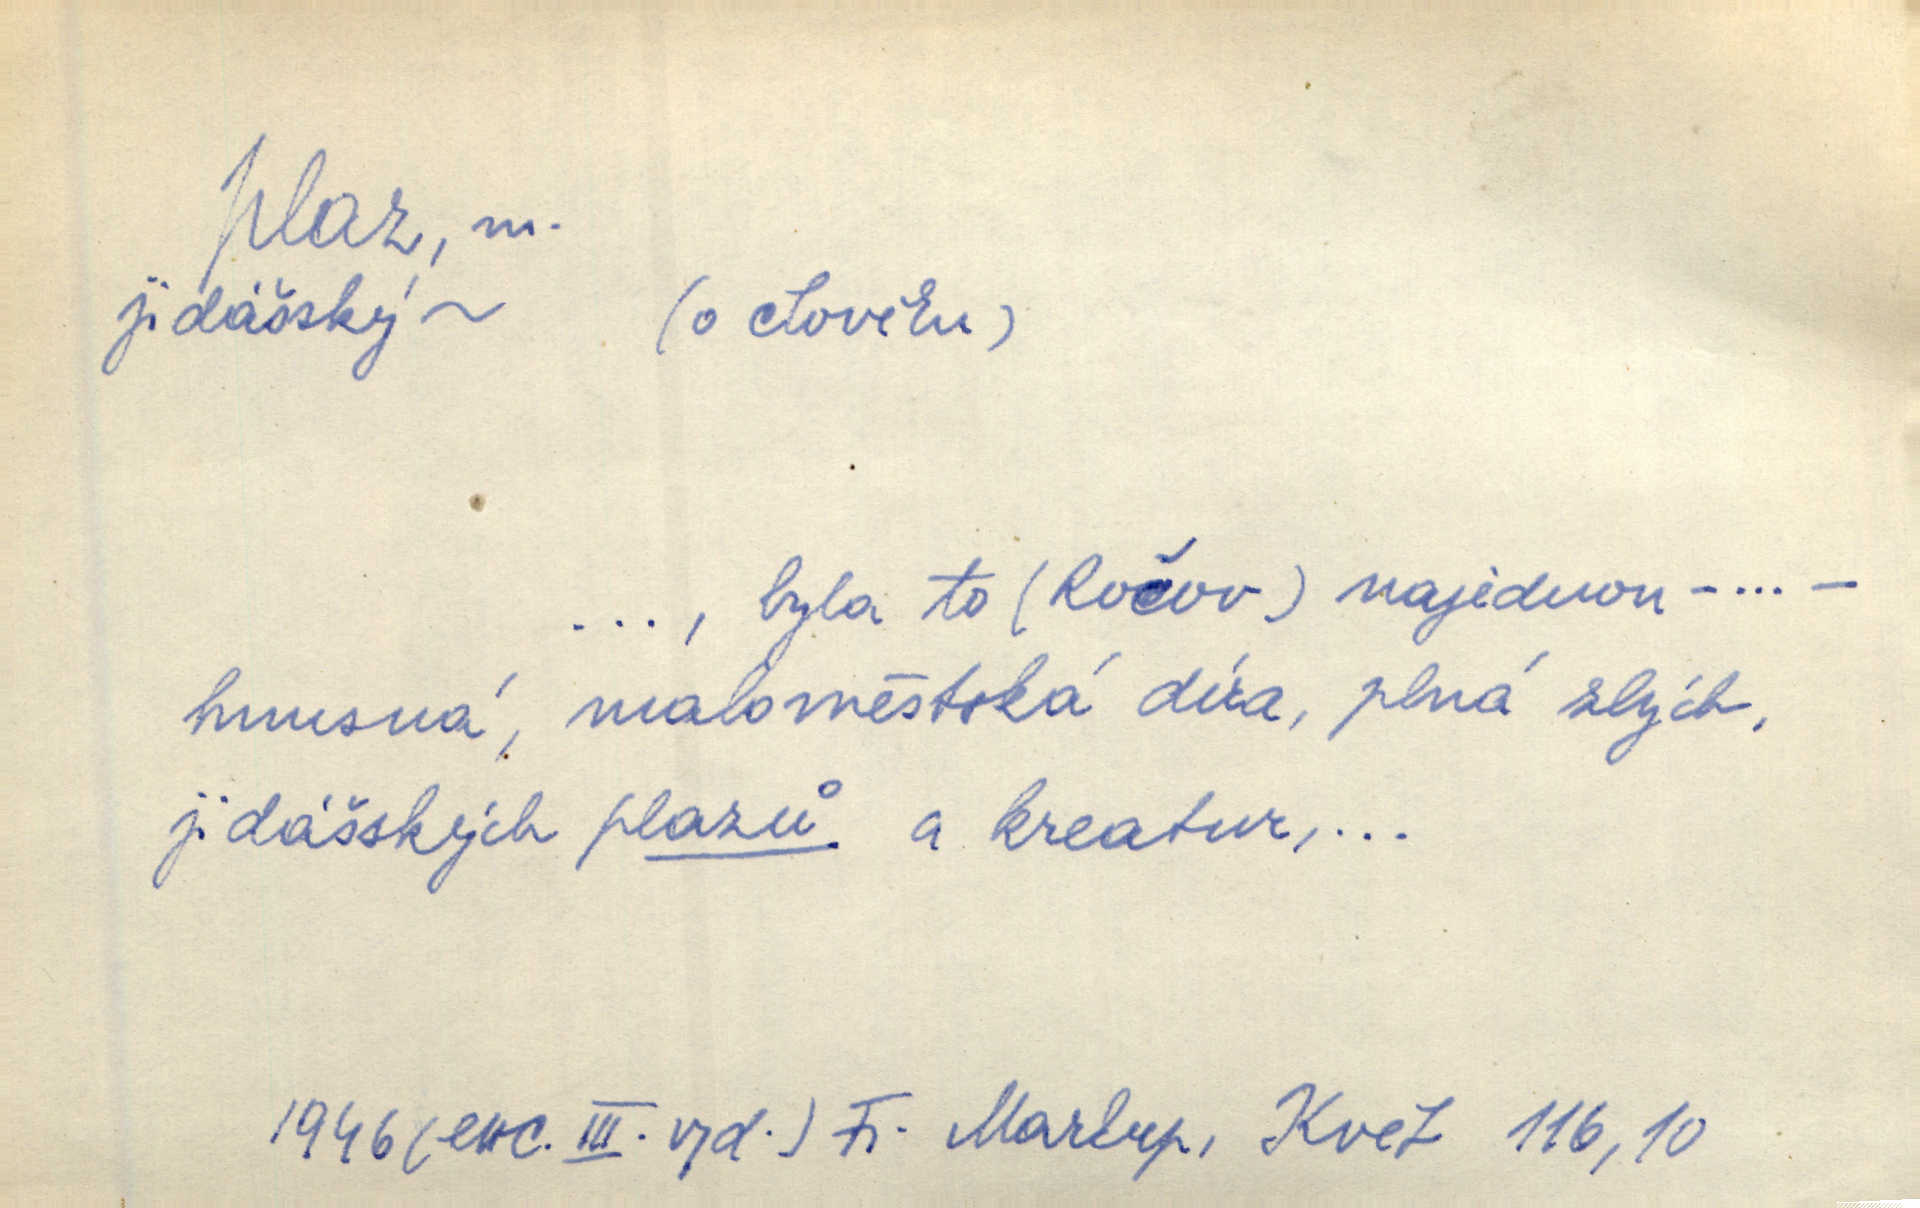 plaz, m.
jidášský ~ (o človeku)
..., byla to (Ročov) najednou -...-
hnusná, maloměstská díra, plná zlých,
jidášských plazů a kreatur,...
1946 (exc. III. vyd.) Fr. Kvet 116,10